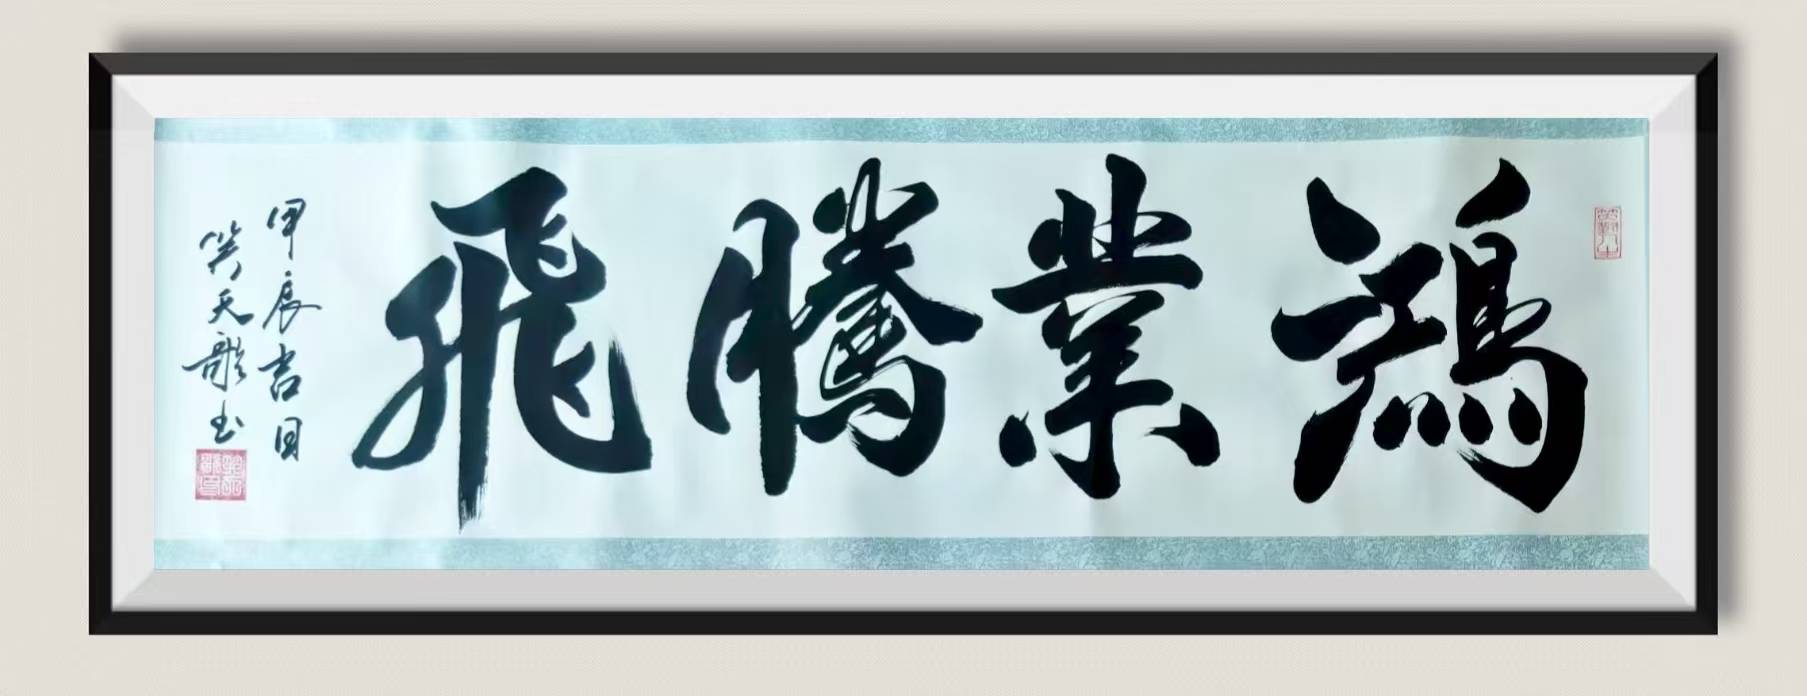 鴻業騰飛
甲辰吉日
笑天歌书